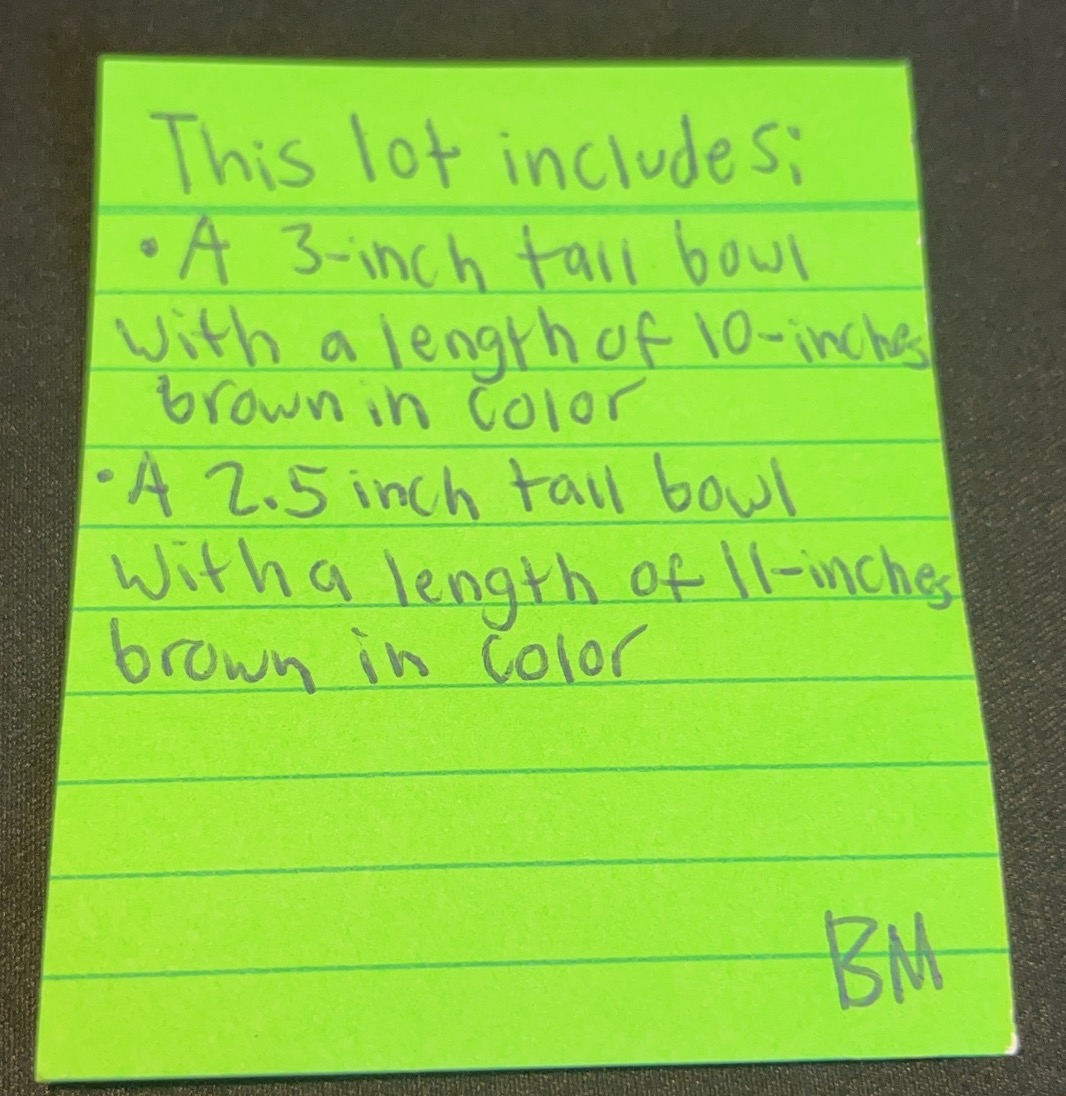 This lot includes:
• A 3-inch tall bowl
with a length of 10-inches
brown in color
• A 2.5 inch tall bowl
With a length of 11-inches
brown in color
BM